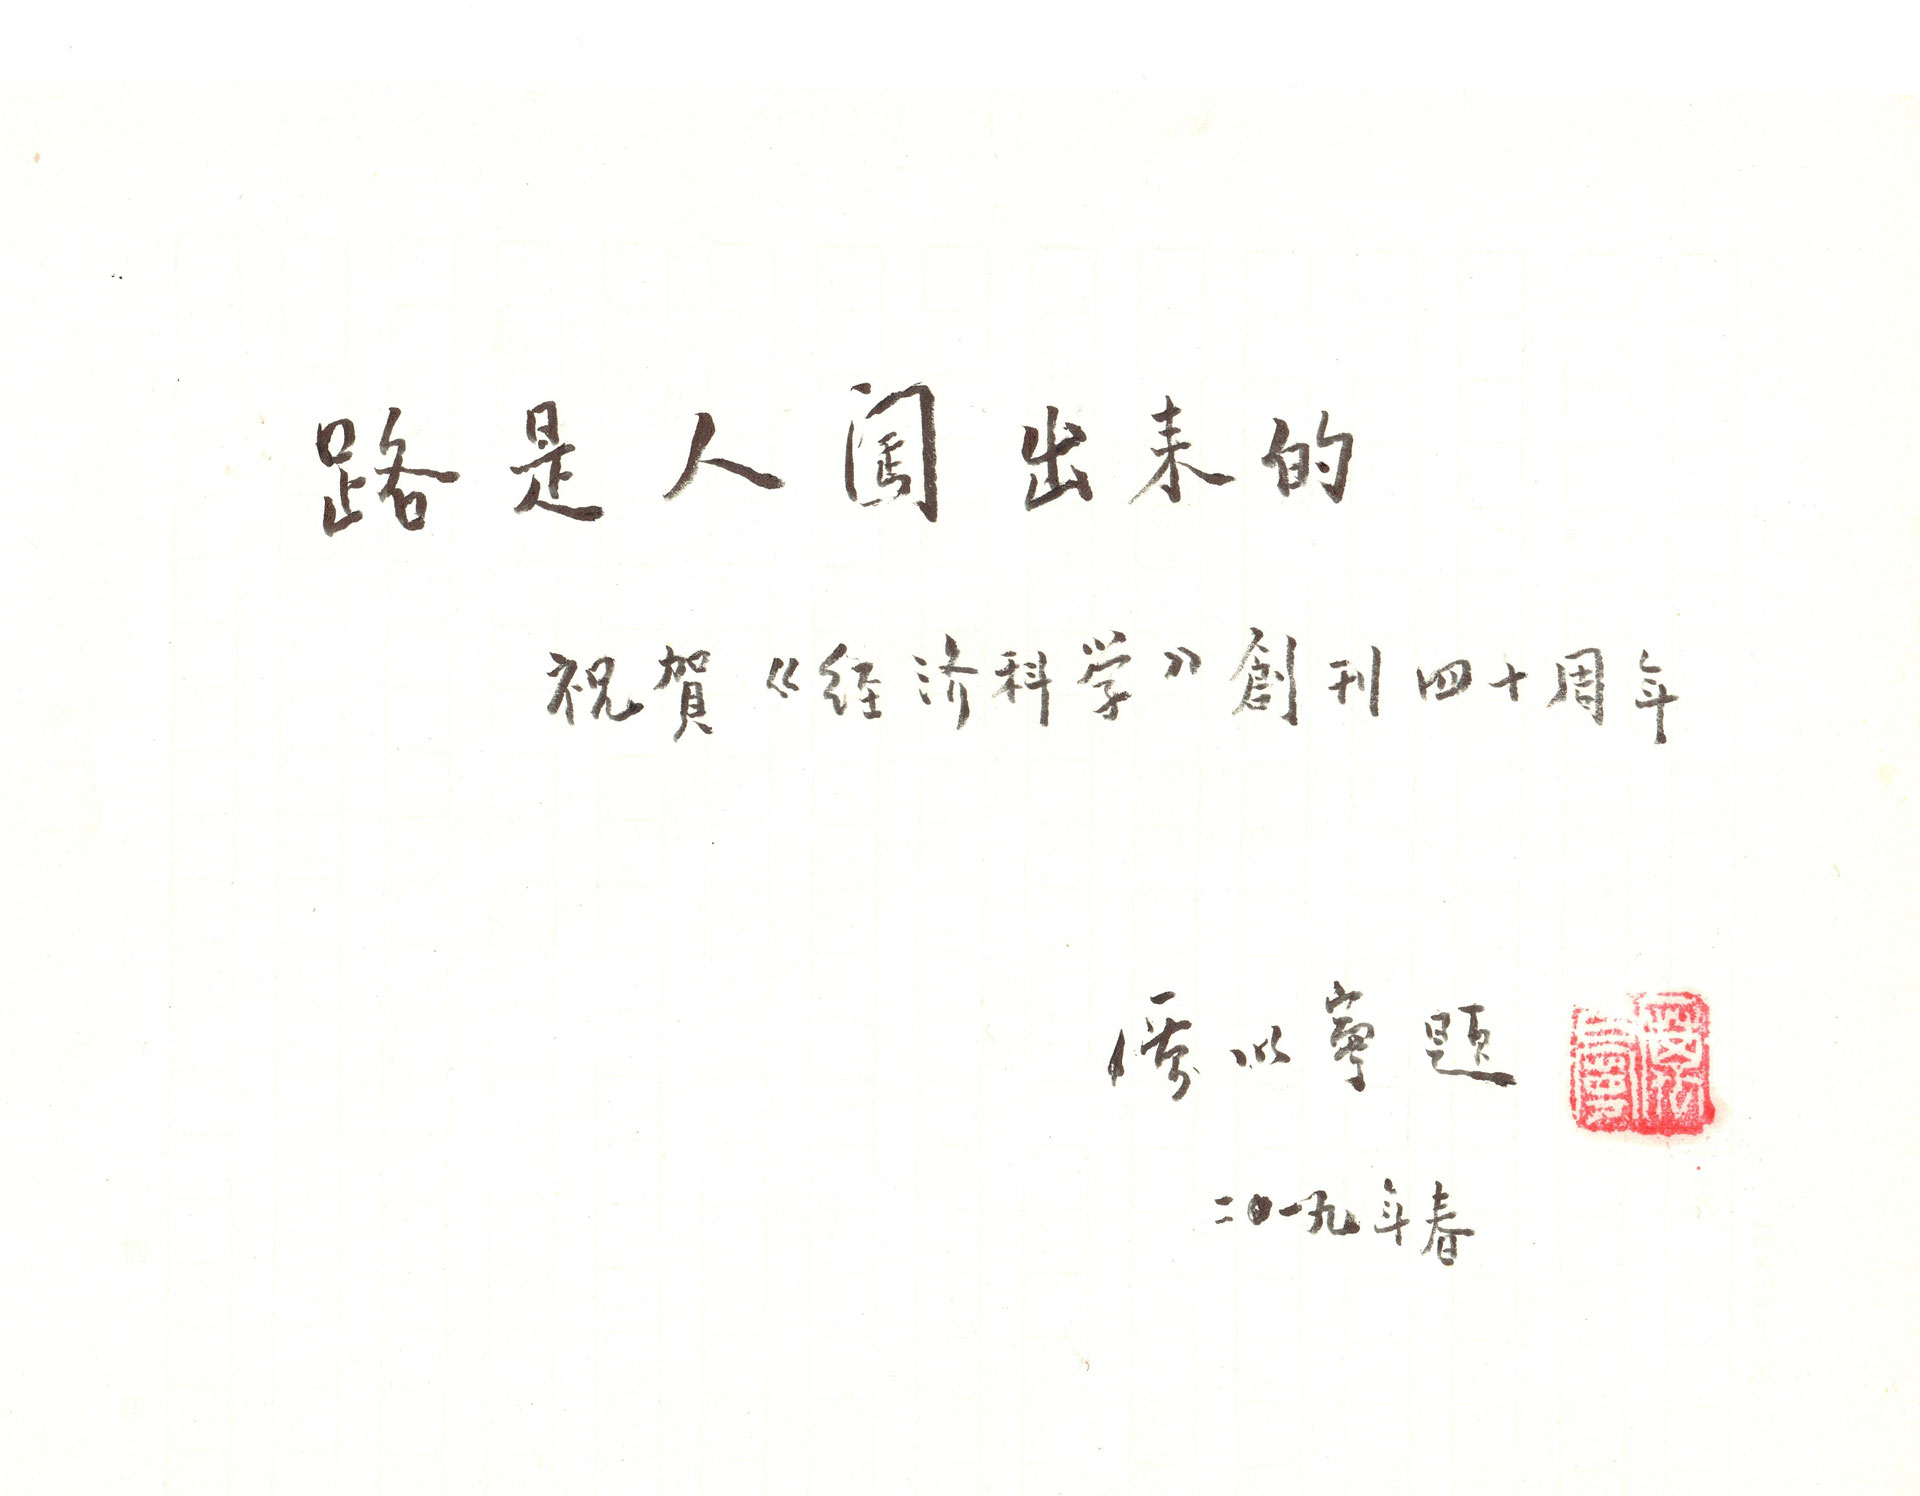 路是人闯出来的
祝賀《经济科学》創刊四十周年
厉以寧題
二〇一九年春